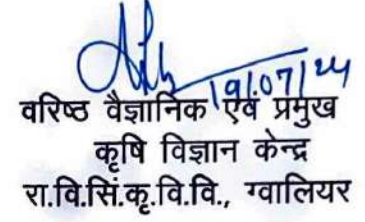 19/07/24
वरिष्ठ वैज्ञानिक एवं प्रमुख
कृषि विज्ञान केन्द्र
रा.वि.सिं.कृ.वि.वि., ग्वालियर